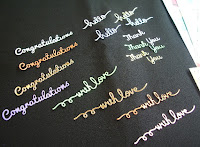 hello
hello
hello
hello
Congratulations
Congratulations
Congratulations
Congratulations
Thank you
Thank you
Thank you
with love
with love
with love
with love